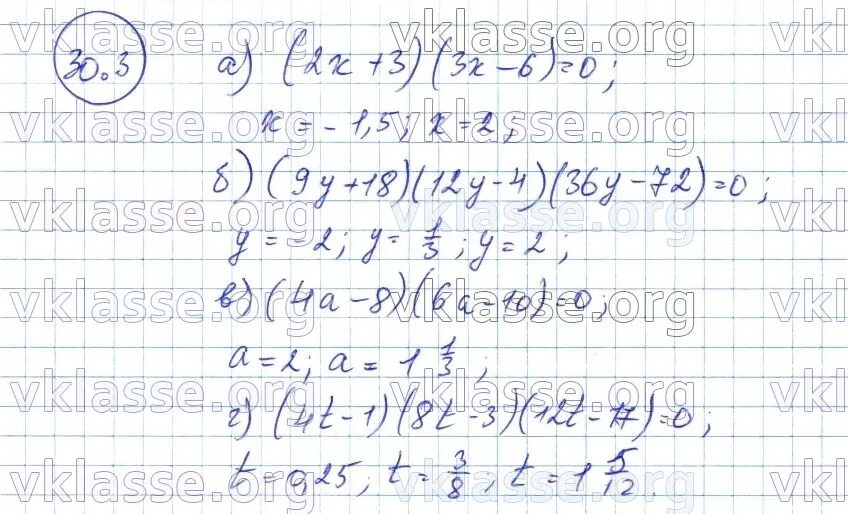 30.3 а) (2x+3)(3x-6)=0;
x=-1,5; x=2;
б) (9y+18)(12y-4)(36y-72)=0;
y=-2; y=1/3; y=2;
в) (4a-8)(6a-10)=0;
a=2; a=1 1/3;
г) (4t-1)(8t-3)(12t-17)=0;
t=0,25; t=3/8; t=1 5/12.
vklasse.org